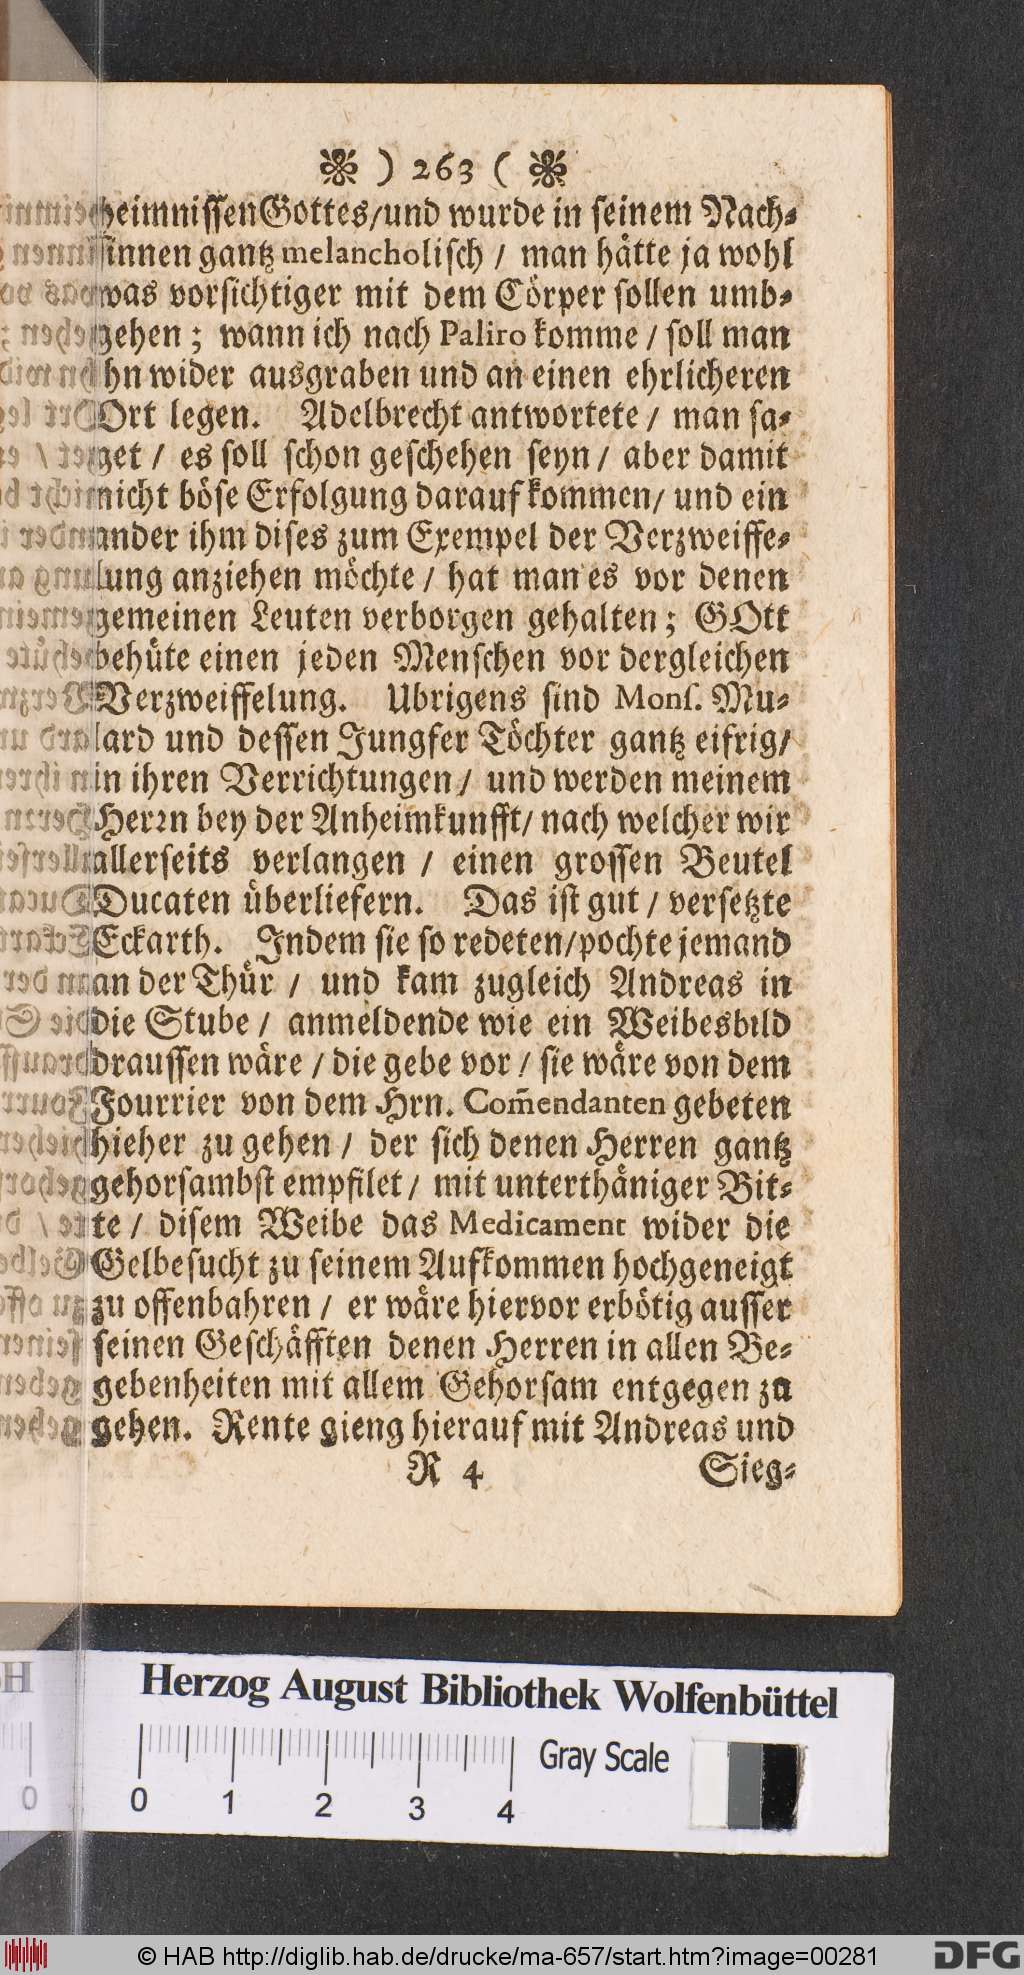 ) 263 (
heimnissen Gottes/und wurde in seinem Nach-
sinnen gantz melancholisch / man hätte ja wohl
was vorsichtiger mit dem Cörper sollen umb-
gehen ; wann ich nach Paliro komme / soll man
ihn wider ausgraben und an einen ehrlicheren
Ort legen. Adelbrecht antwortete / man sa-
get / es soll schon geschehen seyn / aber damit
nicht böse Erfolgung darauf kommen/ und ein
ander ihm dises zum Exempel der Verzweiffe-
lung anziehen möchte / hat man es vor denen
gemeinen Leuten verborgen gehalten ; GOtt
behüte einen jeden Menschen vor dergleichen
Verzweiffelung. Ubrigens sind Monſ. Mu-
lard und dessen Jungfer Töchter gantz eifrig/
in ihren Verrichtungen / und werden meinem
Herrn bey der Anheimkunfft/ nach welcher wir
allerseits verlangen / einen grossen Beutel
Ducaten überliefern. Das ist gut / versetzte
Eckarth. Indem sie so redeten/pochte jemand
an der Thür / und kam zugleich Andreas in
die Stube / anmeldende wie ein Weibesbild
draussen wäre / die gebe vor / sie wäre von dem
Fourrier von dem Hrn. Com̃endanten gebeten
hieher zu gehen / der sich denen Herren gantz
gehorsambst empfilet / mit unterthäniger Bit-
te / disem Weibe das Medicament wider die
Gelbesucht zu seinem Aufkommen hochgeneigt
zu offenbahren / er wäre hiervor erbötig ausser
seinen Geschäfften denen Herren in allen Be-
gebenheiten mit allem Gehorsam entgegen zu
gehen. Rente gieng hierauf mit Andreas und
R 4 Sieg-
Herzog August Bibliothek Wolfenbüttel
Gray Scale
0 1 2 3 4
© HAB http://diglib.hab.de/drucke/ma-657/start.htm?image=00281
DFG